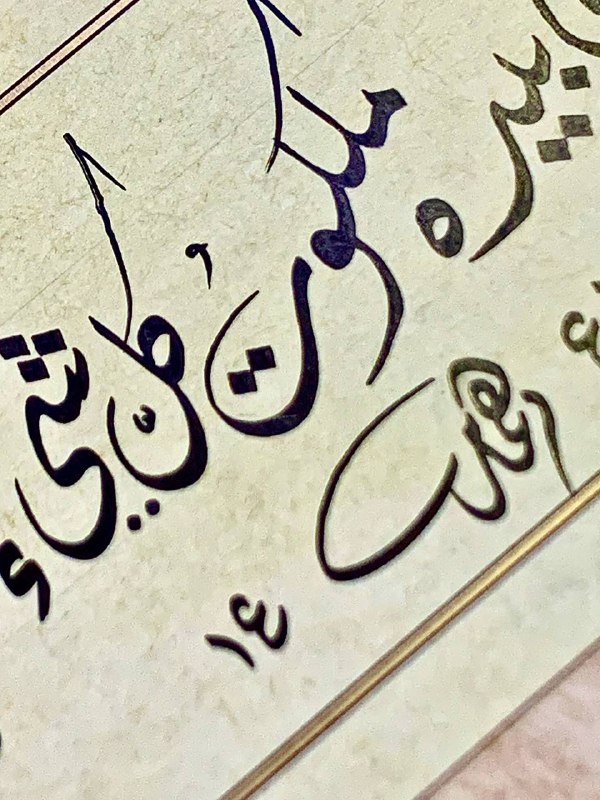 بيده ملكوتُ كلِّ شيء
١٤